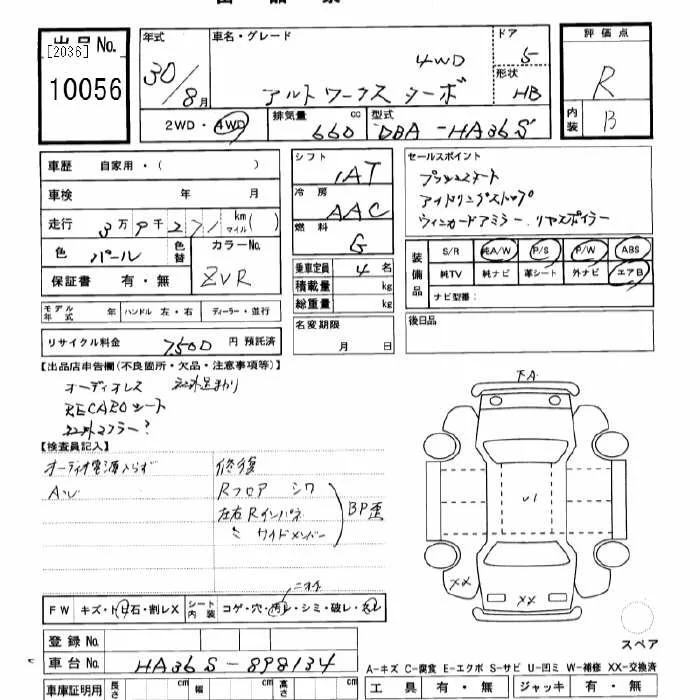 出品No.
[2036]
10056
年式
30/8月
車名・グレード
4WD
アルトワークス ターボ
ドア
5
形状
HB
評価点
R
内装
B
2WD・4WD
排気量
660 cc
型式
DBA-HA36S
車歴 自家用・( )
車検 年 月
走行 3万9千271 km マイル( )
色 パール
色替
カラーNo.
ZVR
保証書 有・無
シフト
IAT
冷房
AAC
燃料
G
乗車定員 4名
積載量 kg
総重量 kg
セールスポイント
プッシュスタート
アイドリングストップ
ウィンカードアミラー、リヤスポイラー
装備品
S/R 純A/W P/S P/W ABS
純TV 純ナビ 革シート 外ナビ エアB
ナビ型番:
モデル年式 年 ハンドル 左・右 ディーラー・並行
名変期限
月 日
後日品
リサイクル料金 7500 円 預託済
【出品店申告欄(不良箇所・欠品・注意事項等)】
オーディオレス
RECAROシート
【検査員記入】
オーディオ電源入らず
AU
修復
Rフロア シワ
左右Rインパネ
〃 サイドメンバー
BP歪
FA
U1
XX
XX
スペア
FW キズ・トビ石・割レX
シート内装 コゲ・穴・汚レ・シミ・破レ・丸レ
登録No.
車台No. HA36S-898134
車庫証明用 長さ cm 幅 cm 高さ cm
A-キズ C-腐食 E-エクボ S-サビ U-凹ミ W-補修 XX-交換済
工具 有・無 ジャッキ 有・無